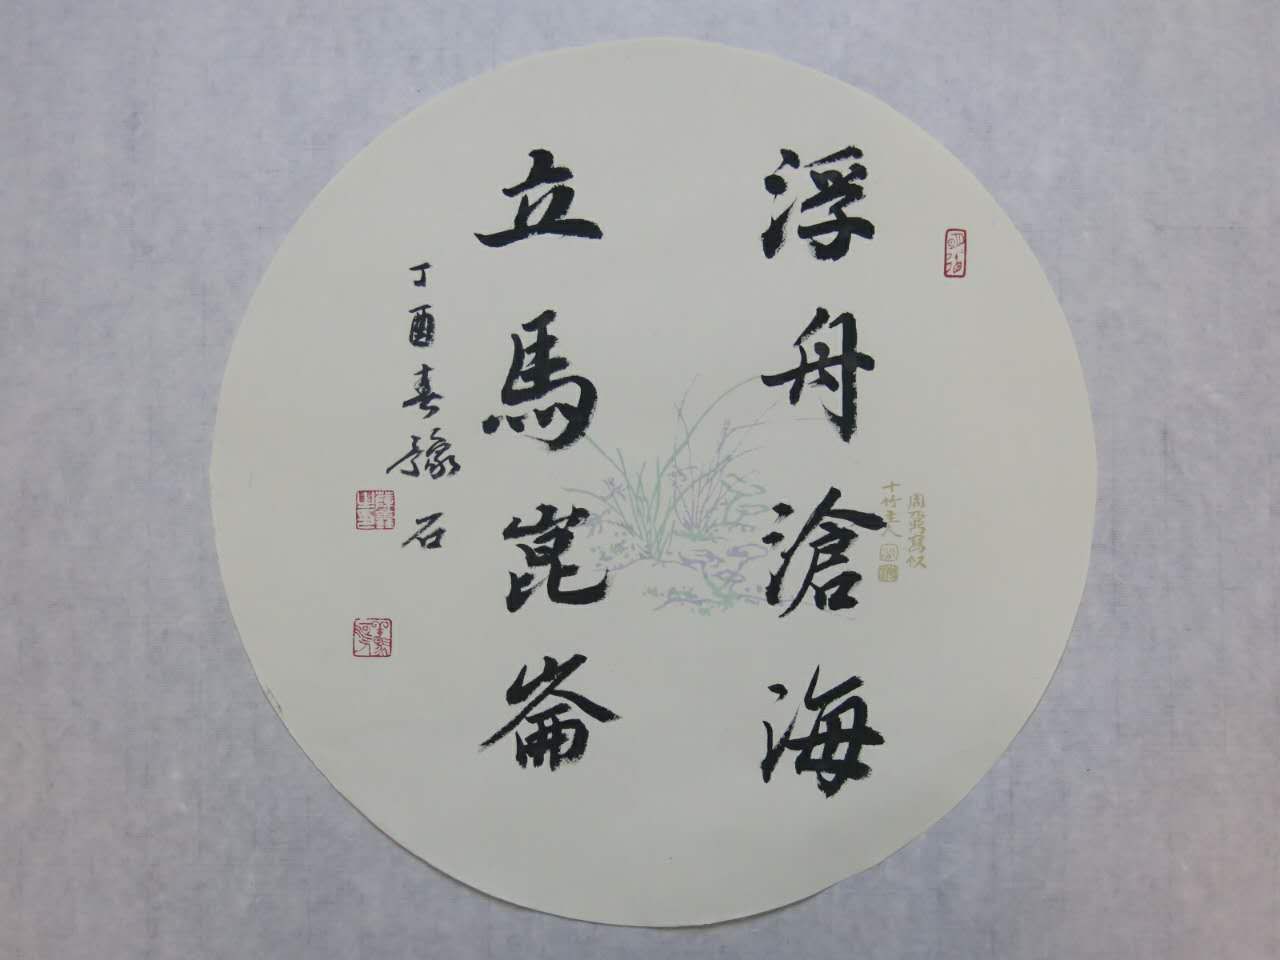 浮舟滄海
立馬崑崙
丁酉春豫石
十竹主人